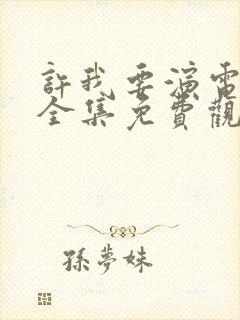 許我要演電
全集免費觀
孫夢妹